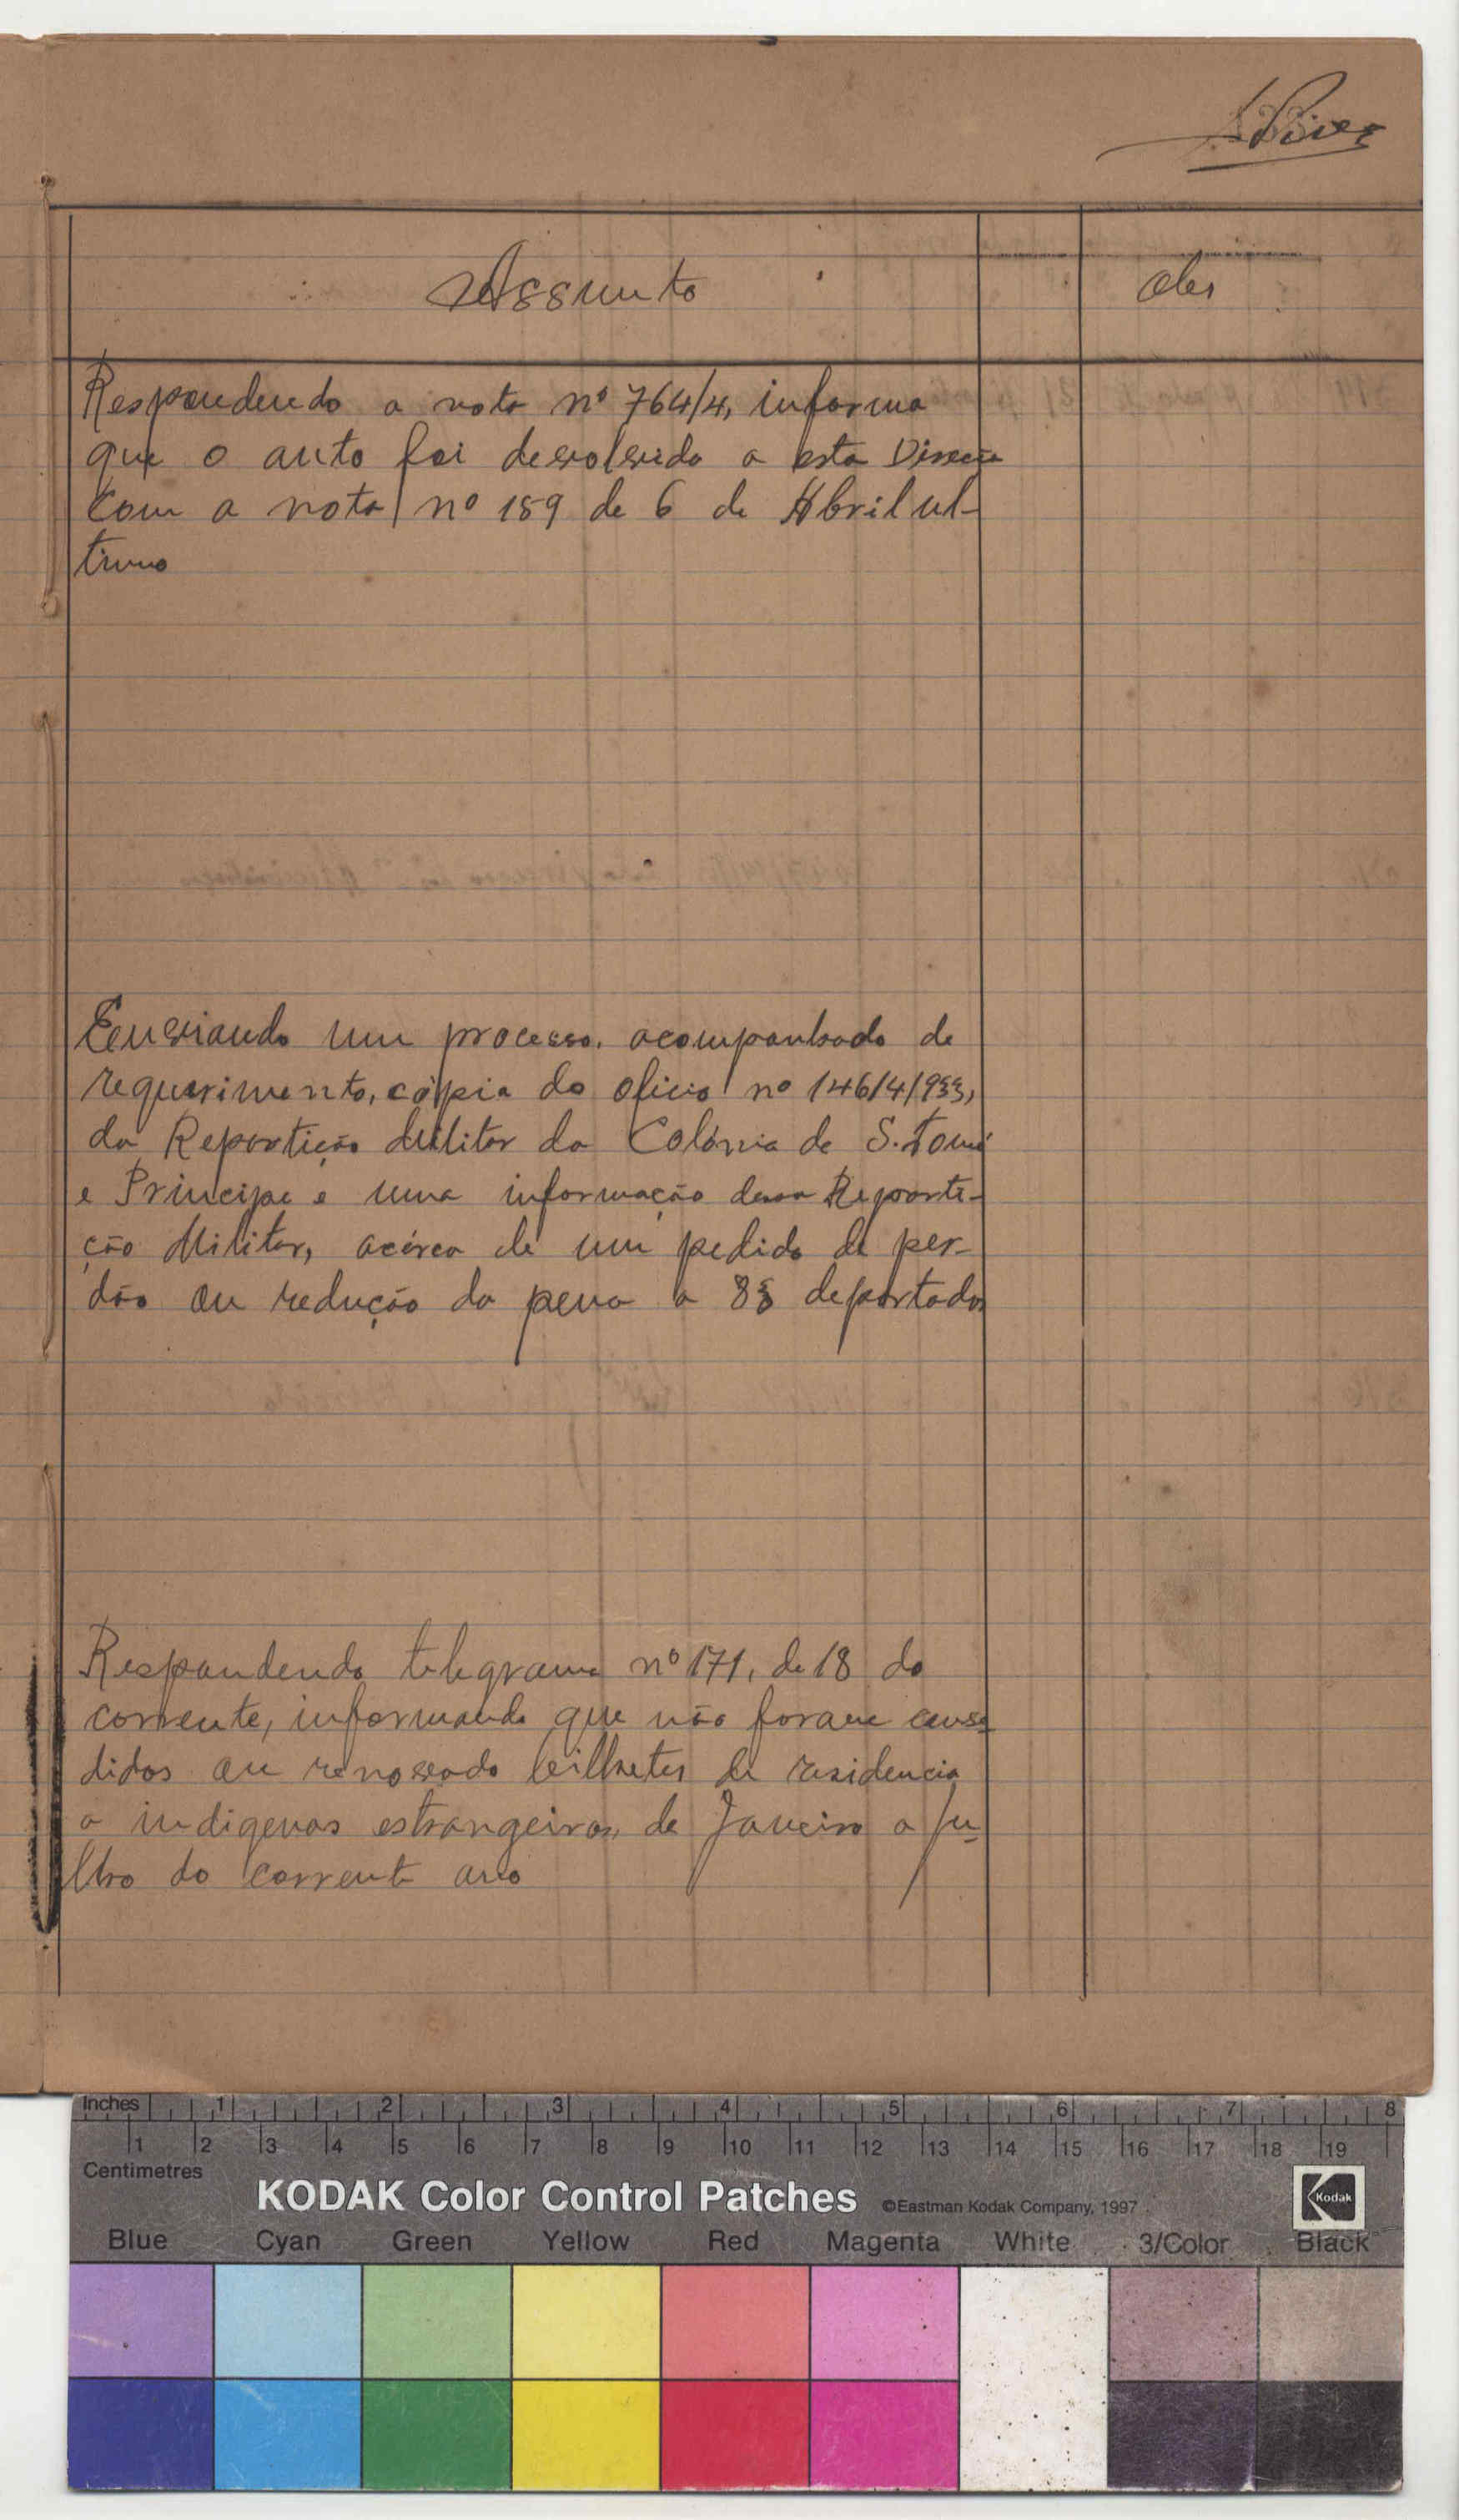 Assunto
Obs
Respondendo a nota nº 764/4, informa
que o auto foi devolvido a esta Direcção
com a nota nº 159 de 6 de Abril ul-
timo
Enviando um processo, acompanhado de
requerimento, cópia do oficio nº 146/4/933,
da Repartição Militar da Colónia de S. Tomé
e Principe e uma informação dessa Reparti-
ção Militar, acêrca de um pedido de per-
dão ou redução da pena a 83 deportados
Respondendo telegrama nº 171, de 18 do
corrente, informando que não foram conse
didos ou renovado bilhetes de residencia
a indigenas estrangeiros, de Janeiro a Ju-
lho do corrente ano
Inches 1 2 3 4 5 6 7 8
1 2 3 4 5 6 7 8 9 10 11 12 13 14 15 16 17 18 19
Centimetres
KODAK Color Control Patches ©Eastman Kodak Company, 1997
Kodak
Blue Cyan Green Yellow Red Magenta White 3/Color Black